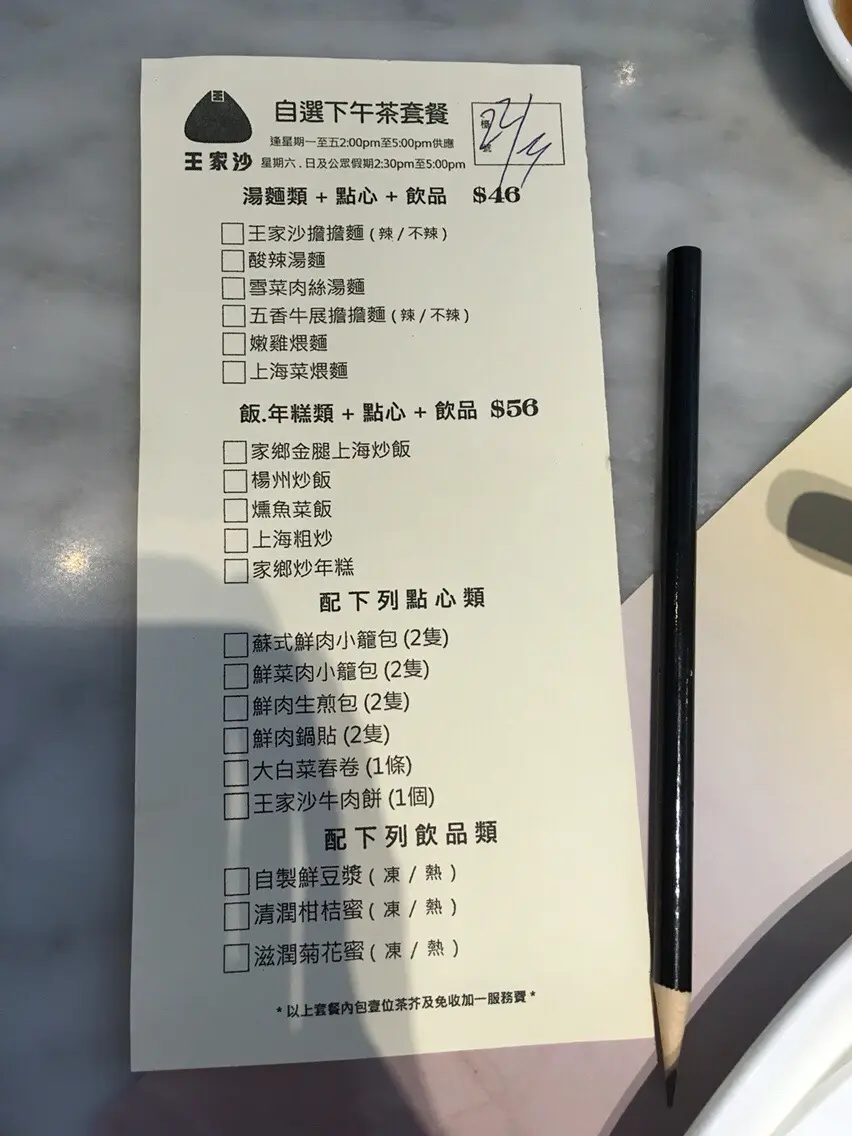 王
王家沙
自選下午茶套餐
逢星期一至五2:00pm至5:00pm供應
星期六.日及公眾假期2:30pm至5:00pm
湯麵類 + 點心 + 飲品 $46
王家沙擔擔麵 ( 辣 / 不辣 )
酸辣湯麵
雪菜肉絲湯麵
五香牛展擔擔麵 ( 辣 / 不辣 )
嫩雞煨麵
上海菜煨麵
飯.年糕類 + 點心 + 飲品 $56
家鄉金腿上海炒飯
楊州炒飯
燻魚菜飯
上海粗炒
家鄉炒年糕
配下列點心類
蘇式鮮肉小籠包 (2隻)
鮮菜肉小籠包 (2隻)
鮮肉生煎包 (2隻)
鮮肉鍋貼 (2隻)
大白菜春卷 (1條)
王家沙牛肉餅 (1個)
配下列飲品類
自製鮮豆漿 ( 凍 / 熱 )
清潤柑桔蜜 ( 凍 / 熱 )
滋潤菊花蜜 ( 凍 / 熱 )
* 以上套餐內包壹位茶芥及免收加一服務費 *